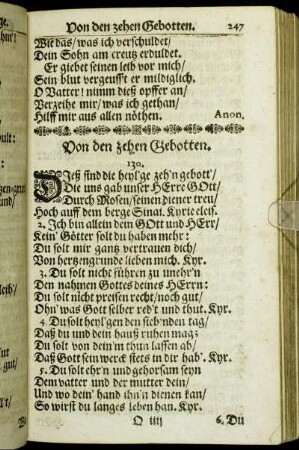 Von den zehen Gebotten. 247
Wie das/ was ich verschuldet/
Dein Sohn am creutz erduldet.
Er giebet seinen leib vor mich/
Sein blut vergeusst er mildiglich.
O Vatter! nimm dieß opffer an/
Verzeihe mir/ was ich gethan/
Hilff mir aus allen nöthen. Anon.
Von den zehen Gebotten.
130.
DJeß sind die heyl'ge zeh'n gebott/
Die uns gab unser HErre GOtt/
Durch Mosen/ seinen diener treu/
Hoch auff dem berge Sinai. Kyrie eleis.
2. Ich bin allein dein GOtt und HErr/
Kein' Götter solt du haben mehr:
Du solt mir gantz vertrauen dich/
Von hertzengrunde lieben mich. Kyr.
3. Du solt nicht führen zu unehr'n
Den nahmen Gottes deines HErrn:
Du solt nicht preisen recht/ noch gut/
Ohn' was Gott selber red't und thut. Kyr.
4. Du solt heyl'gen den sieb'nden tag/
Daß du und dein hauß ruhen mag:
Du solt von dein'm thun lassen ab/
Daß Gott sein werck stets in dir hab'. Kyr.
5. Du solt ehr'n und gehorsam seyn
Dem vatter und der mutter dein/
Und wo dein' hand ihn'n dienen kan/
So wirst du langes leben han. Kyr.
Q iiij 6. Du